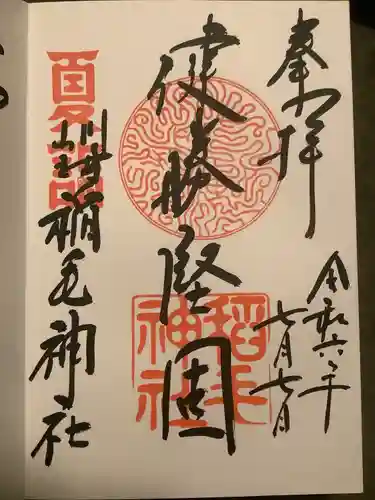 奉拝
令和六年
七月七日
健勝堅固
稲毛
神社
夏詣
川崎稲毛神社